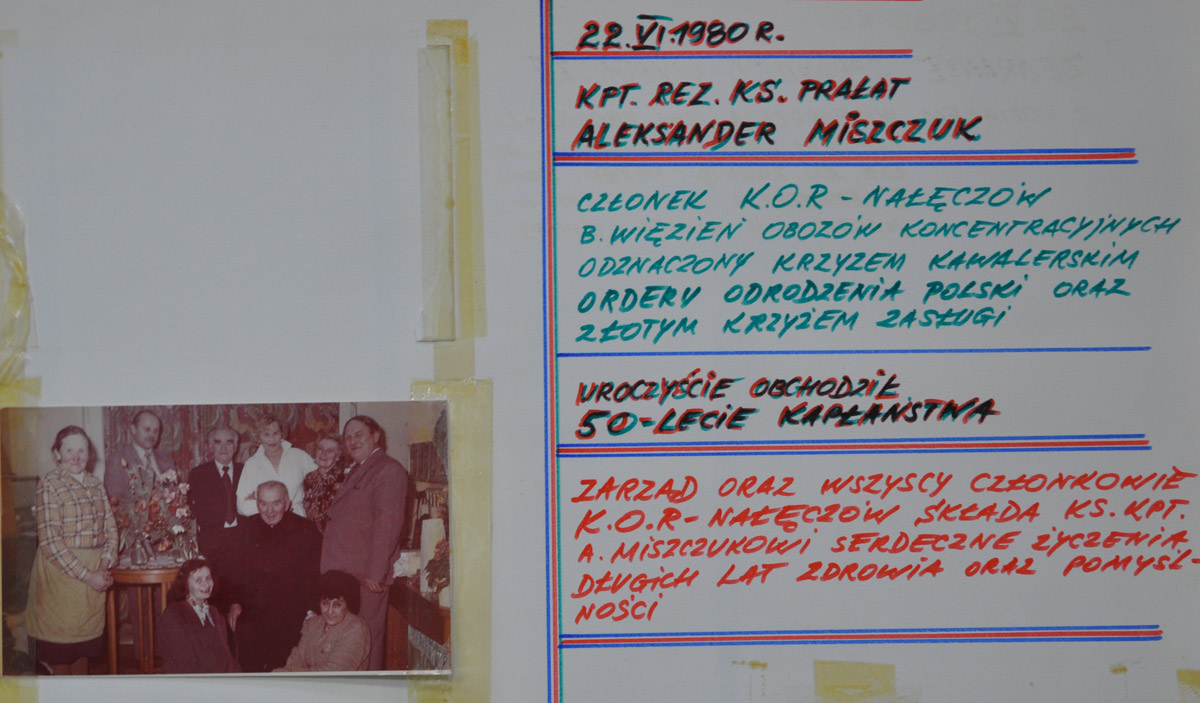 22.VI.1980 R.
KPT. REZ. KS. PRAŁAT
ALEKSANDER MISZCZUK
CZŁONEK K.O.R - NAŁĘCZÓW
B. WIĘZIEŃ OBOZÓW KONCENTRACYJNYCH
ODZNACZONY KRZYŻEM KAWALERSKIM
ORDERU ODRODZENIA POLSKI ORAZ
ZŁOTYM KRZYŻEM ZASŁUGI
UROCZYŚCIE OBCHODZIŁ
50-LECIE KAPŁAŃSTWA
ZARZĄD ORAZ WSZYSCY CZŁONKOWIE
K.O.R - NAŁĘCZÓW SKŁADA KS. KPT.
A. MISZCZUKOWI SERDECZNE ŻYCZENIA
DŁUGICH LAT ZDROWIA ORAZ POMYŚL-
NOŚCI